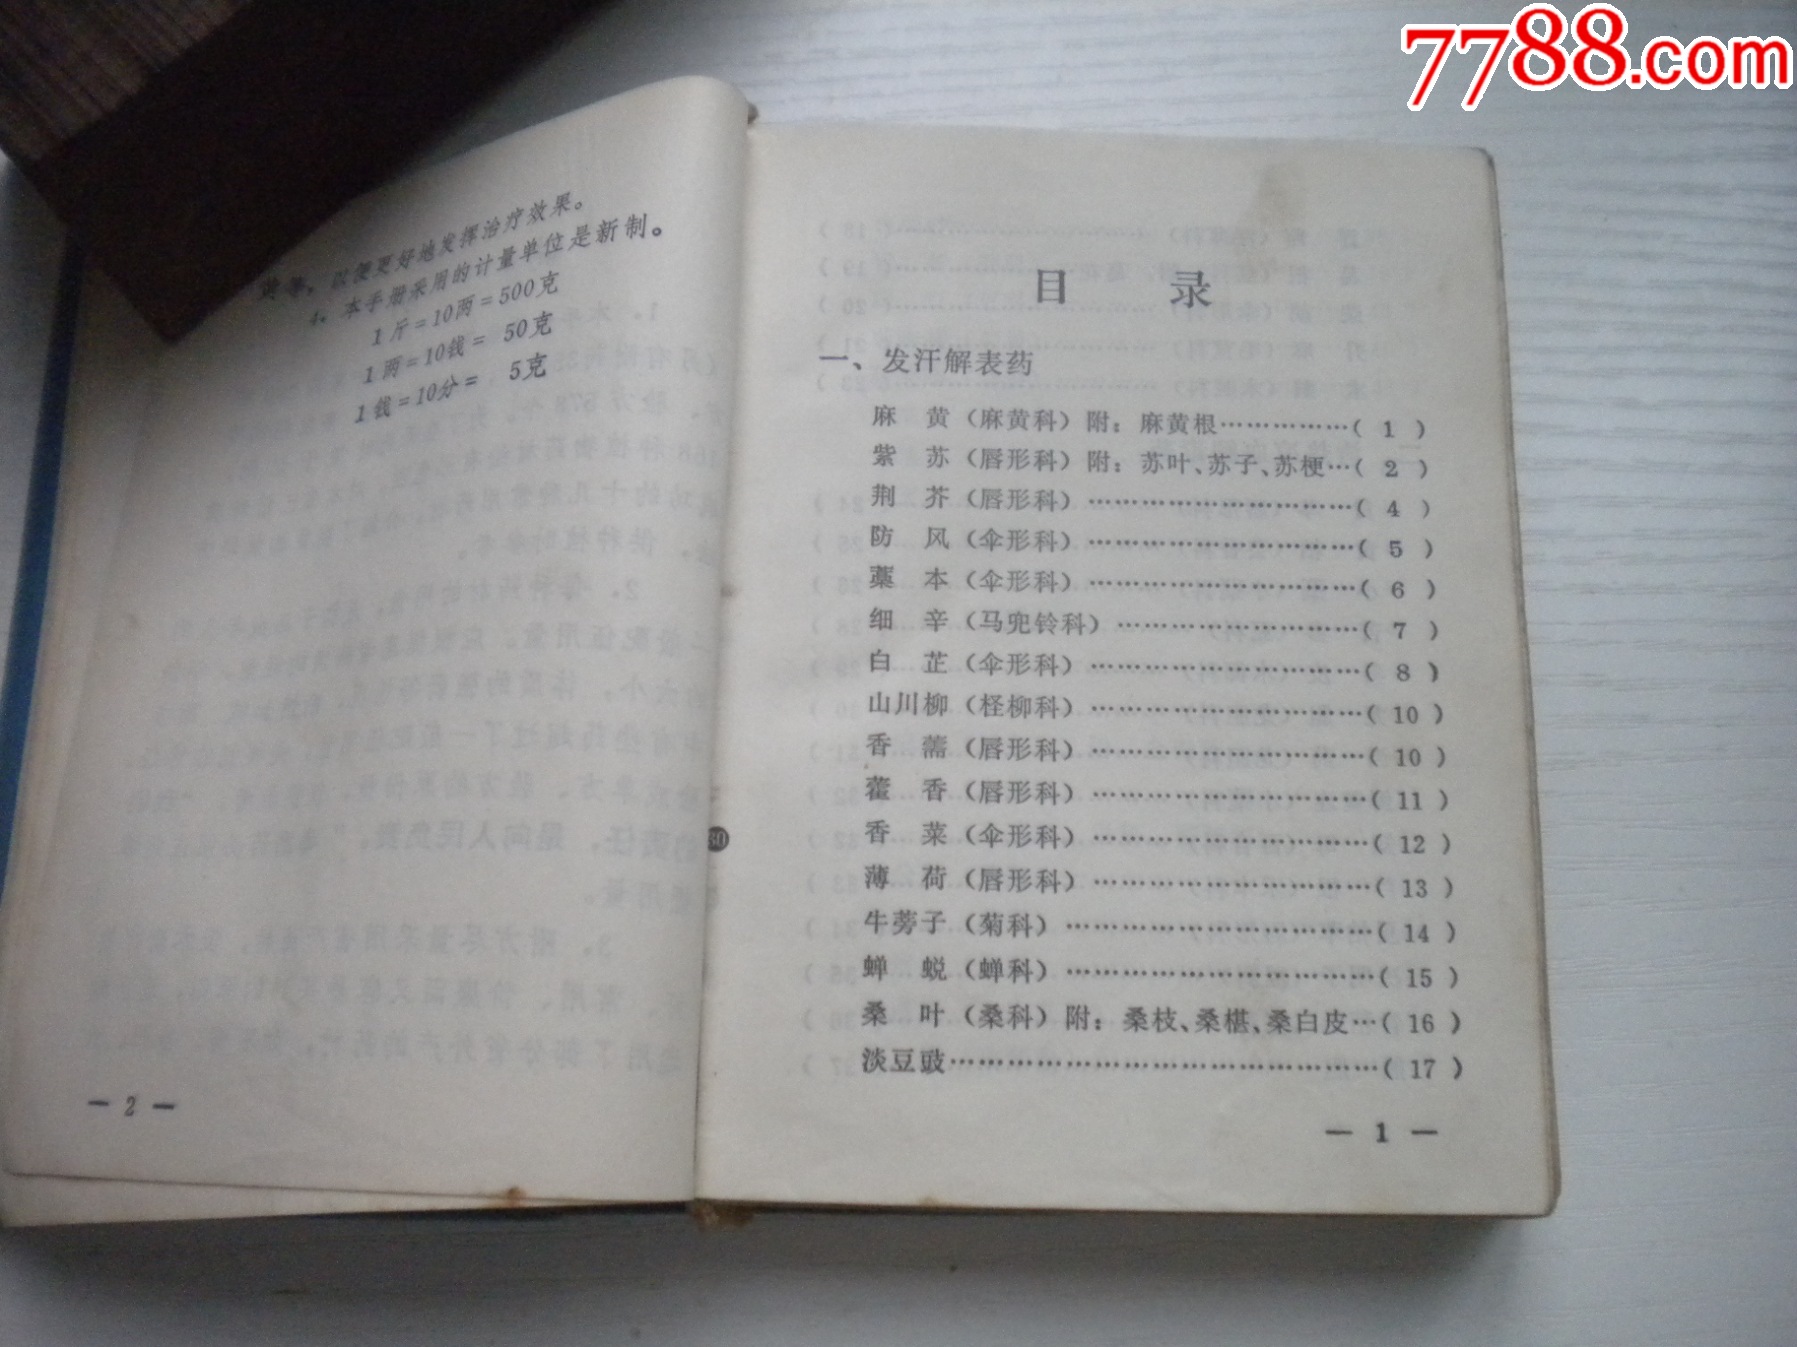 7788.com
以便更好地发挥治疗效果。
4. 本手册采用的计量单位是新制。
1斤=10两=500克
1两=10钱= 50克
1钱=10分= 5克
— 2 —
目 录
一、发汗解表药
麻 黄（麻黄科）附：麻黄根……………( 1 )
紫 苏（唇形科）附：苏叶、苏子、苏梗…( 2 )
荆 芥（唇形科）………………………( 4 )
防 风（伞形科）………………………( 5 )
藁 本（伞形科）………………………( 6 )
细 辛（马兜铃科）……………………( 7 )
白 芷（伞形科）………………………( 8 )
山川柳（柽柳科）………………………( 10 )
香 薷（唇形科）………………………( 10 )
藿 香（唇形科）………………………( 11 )
香 菜（伞形科）………………………( 12 )
薄 荷（唇形科）………………………( 13 )
牛蒡子（菊科）…………………………( 14 )
蝉 蜕（蝉科）…………………………( 15 )
桑 叶（桑科）附：桑枝、桑椹、桑白皮…( 16 )
淡豆豉……………………………………( 17 )
— 1 —